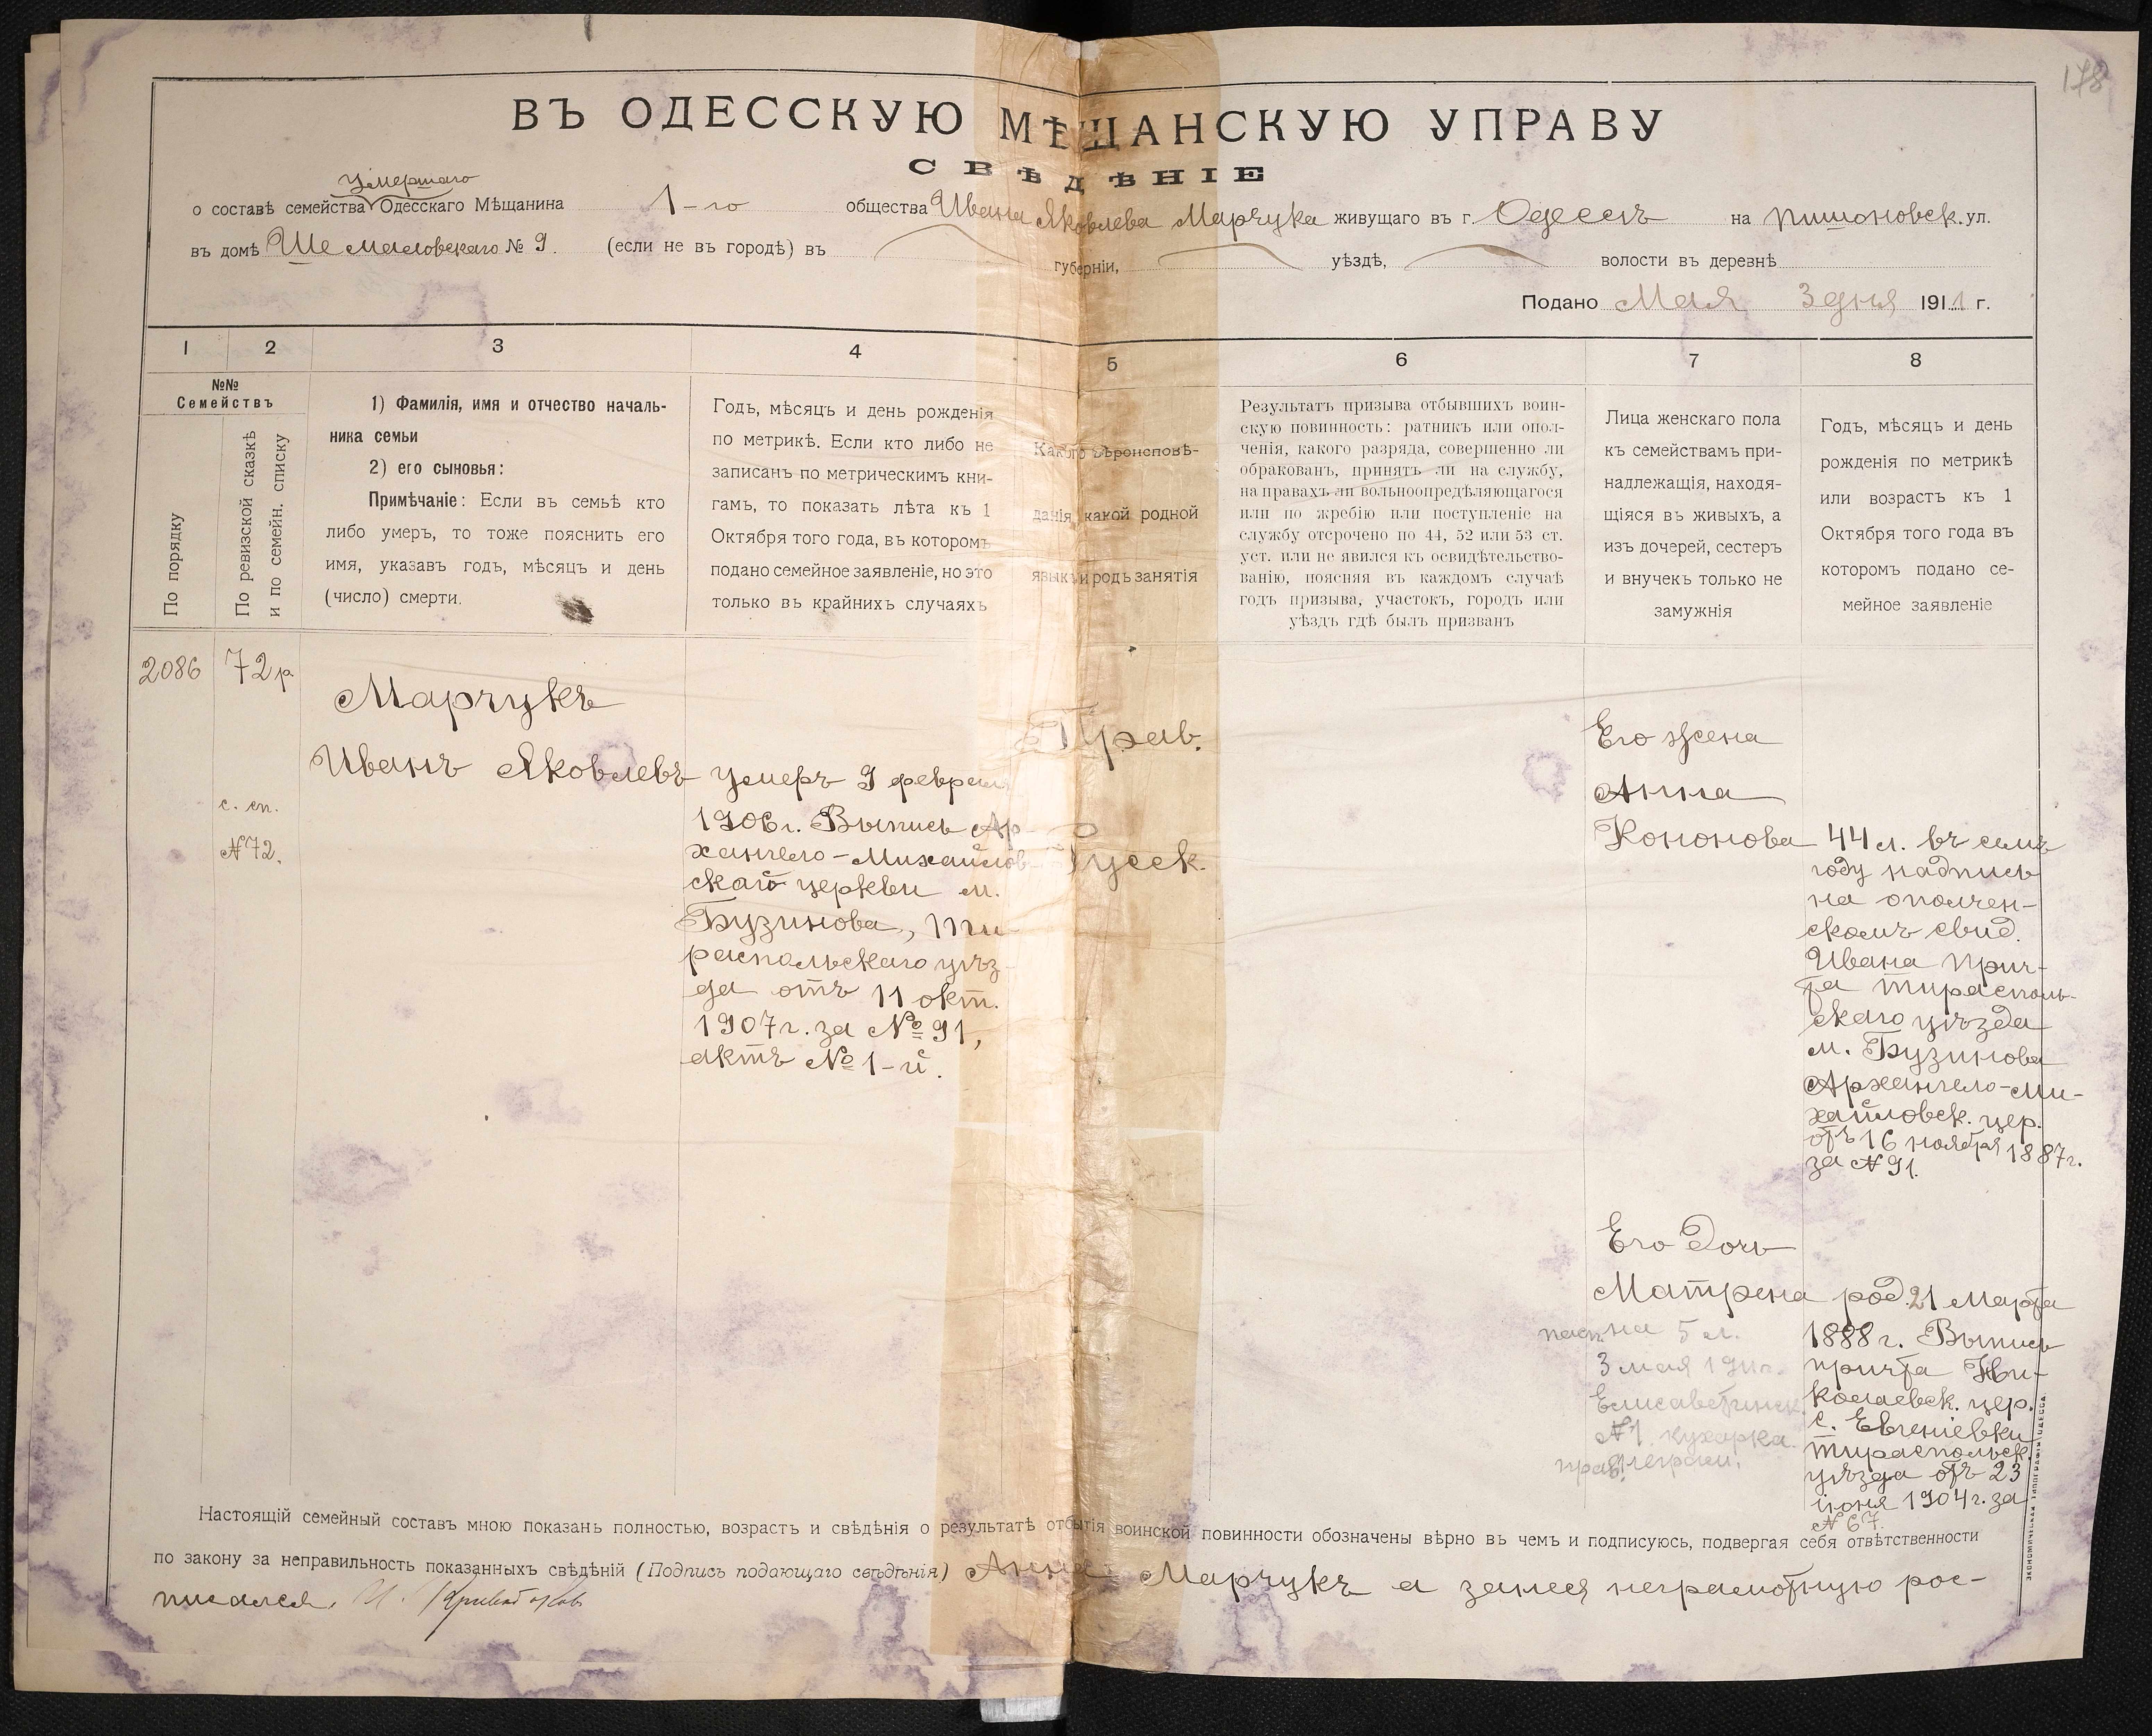 178
ВЪ ОДЕССКУЮ МѢЩАНСКУЮ УПРАВУ
СВѢДѢНІЕ
умершаго
о составѣ семейства Одесскаго Мѣщанина 1-го общества Ивана Яковлева Марчука живущаго въ г. Одессѣ на Пишоновск. ул.
въ домѣ Шемаловскаго № 9. (если не въ городѣ) въ губерніи, уѣздѣ, волости въ деревнѣ
Подано Мая 3 дня 1911 г.
1 2 3 4 5 6 7 8
№№
Семействъ
По порядку
По ревизской сказкѣ
и по семейн. списку
1) Фамилія, имя и отчество началь-
ника семьи
2) его сыновья:
Примѣчаніе: Если въ семьѣ кто
либо умеръ, то тоже пояснить его
имя, указавъ годъ, мѣсяцъ и день
(число) смерти.
Годъ, мѣсяцъ и день рожденія
по метрикѣ. Если кто либо не
записанъ по метрическимъ кни-
гамъ, то показать лѣта къ 1
Октября того года, въ которомъ
подано семейное заявленіе, но это
только въ крайнихъ случаяхъ
Какого вѣроисповѣ-
данія, какой родной
языкъ и родъ занятія
Результатъ призыва отбывшихъ воин-
скую повинность: ратникъ или опол-
ченія, какого разряда, совершенно ли
обракованъ, принятъ ли на службу,
на правахъ ли вольноопредѣляющагося
или по жребію или поступленіе на
службу отсрочено по 44, 52 или 53 ст.
уст. или не явился къ освидѣтельство-
ванію, поясняя въ каждомъ случаѣ
годъ призыва, участокъ, городъ или
уѣздъ гдѣ былъ призванъ
Лица женскаго пола
къ семействамъ при-
надлежащія, находя-
щіяся въ живыхъ, а
изъ дочерей, сестеръ
и внучекъ только не
замужнія
Годъ, мѣсяцъ и день
рожденія по метрикѣ
или возрастъ къ 1
Октября того года въ
которомъ подано се-
мейное заявленіе
2086
72 р.
с. сп.
№ 72.
Марчукъ
Иванъ Яковлевъ
умеръ 9 феврал
1906 г. Выпись Ар-
хангело-Михайлов-
ской церкви м.
Бузинова, Ти-
распольскаго уѣз-
да отъ 11 окт.
1907 г. за № 91,
актъ № 1-й.
Прав.
Русск.
Его жена
Анна
Кононова
44 л. въ семъ
году надпись
на ополчен-
скомъ свид.
Ивана прич-
та Тирасполь-
скаго уѣзда
м. Бузинова
Архангело-Ми-
хайловск. цер.
отъ 16 ноября 1887 г.
за № 91.
Его Дочь
Матрена
пасп на 5 л.
3 мая 1911 г.
Елисаветинск.
№ 1. кухарка.
прав. неграм.
род. 21 Марта
1888 г. Выпись
причта Ни-
колаевск. цер.
с. Евгеніевки
Тираспольск.
уѣзда отъ 23
іюня 1904 г. за
№ 67.
Настоящій семейный составъ мною показанъ полностью, возрастъ и свѣдѣнія о результатѣ отбытія воинской повинности обозначены вѣрно въ чемъ и подписуюсь, подвергая себя отвѣтственности
по закону за неправильность показанныхъ свѣдѣній (Подпись подающаго свѣдѣнія) Анна Марчукъ а занея неграмотную рос-
писался. И.
ЭКОНОМИЧЕСКАЯ ТИПОГРАФІЯ ОДЕССА.